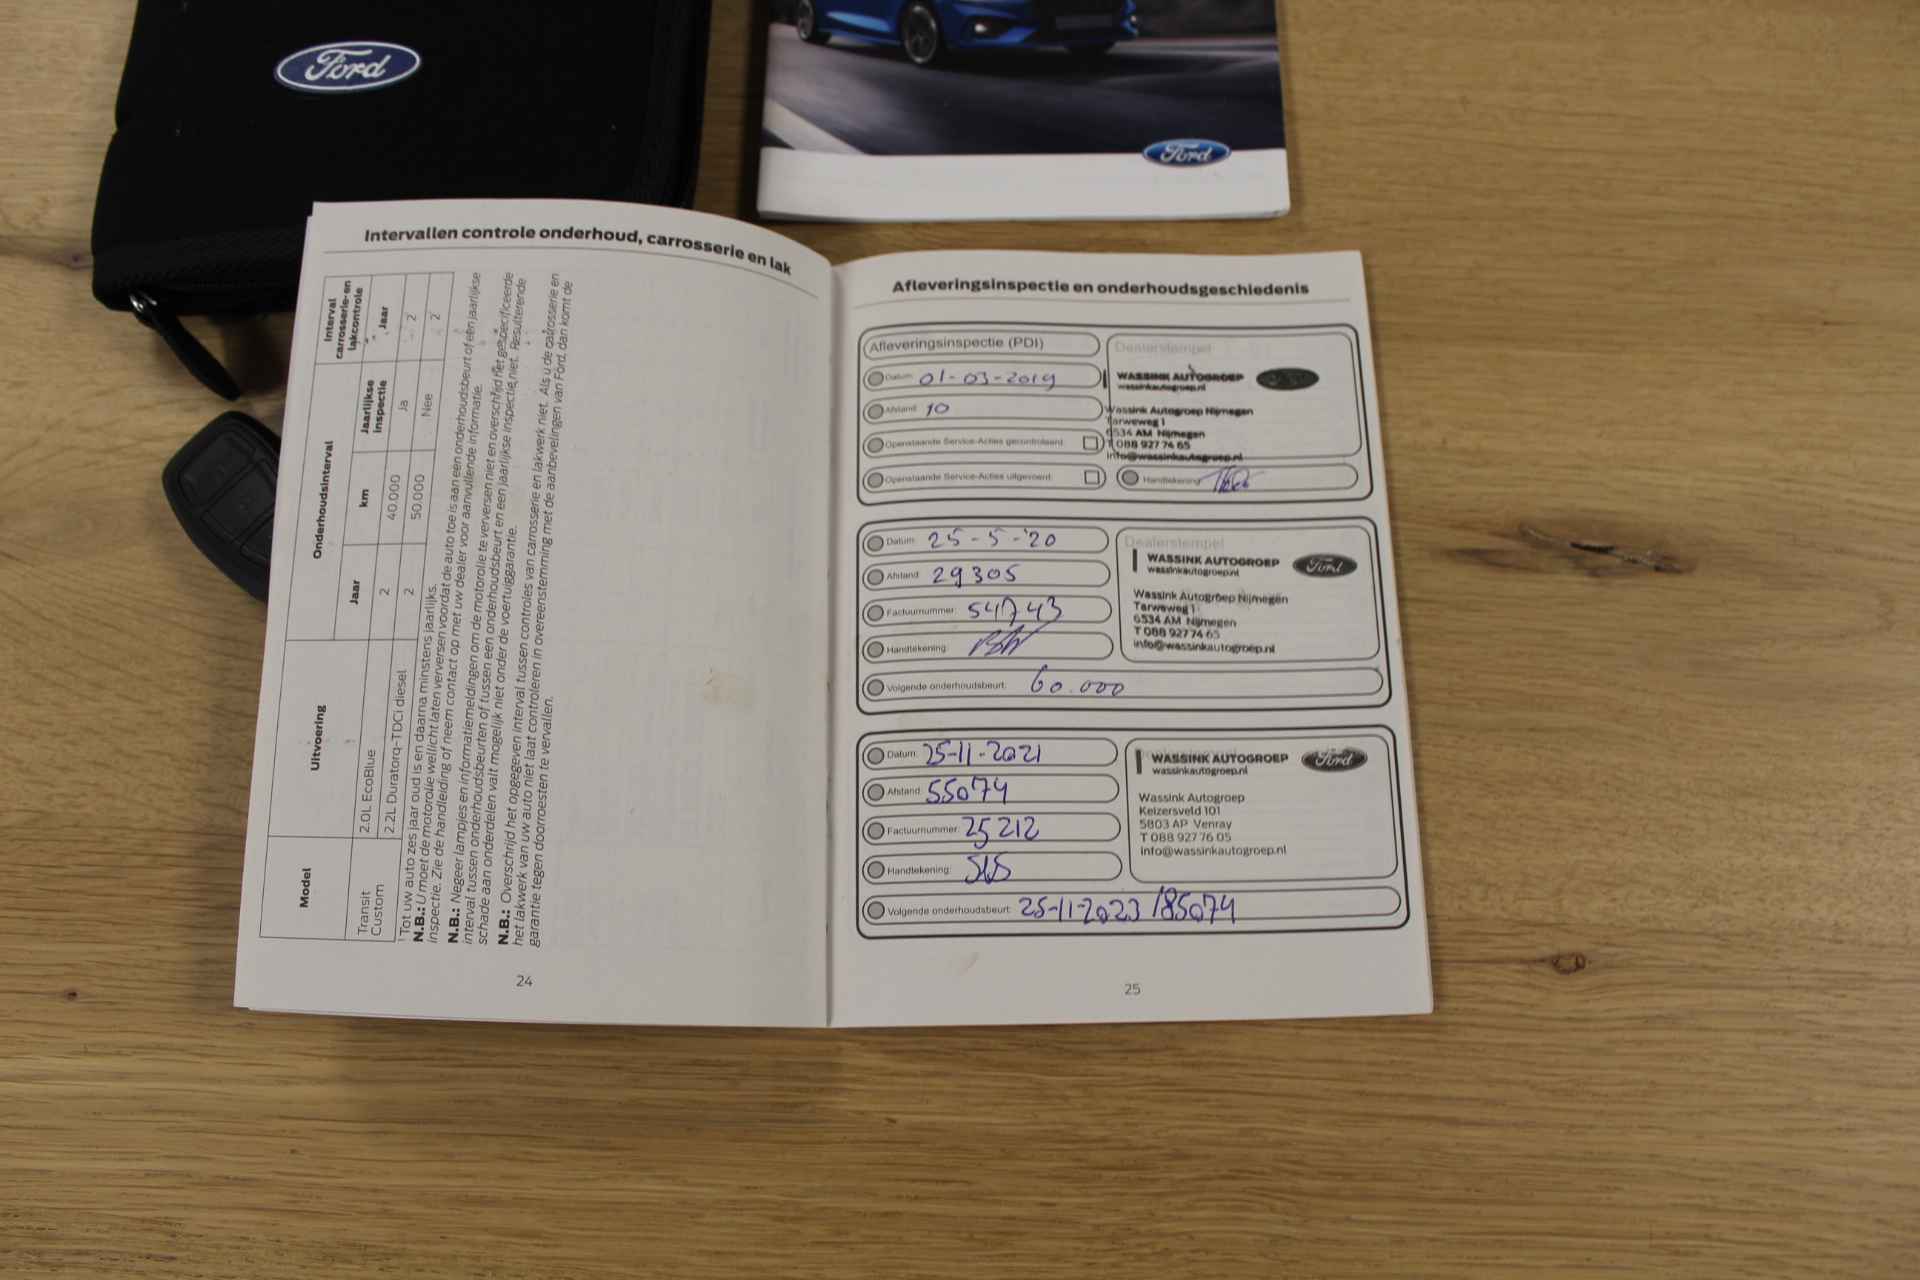 Ford
Ford
Intervallen controle onderhoud, carrosserie en lak
Model
Uitvoering
Onderhoudsinterval
Interval carrosserie-en lakcontrole
Jaar
km
Jaarlijkse inspectie
Jaar
Transit Custom
2.0L EcoBlue
2
40.000
Ja
2
2.2L Duratorq-TDCi diesel
2
50.000
Nee
2
¹ Tot uw auto zes jaar oud is en daarna minstens jaarlijks.
N.B.: U moet de motorolie wellicht laten verversen voordat de auto toe is aan een onderhoudsbeurt of een jaarlijkse
inspectie. Zie de handleiding of neem contact op met uw dealer voor aanvullende informatie.
N.B.: Negeer lampjes en informatiemeldingen om de motorolie te verversen niet en overschrijd het gespecificeerde
interval tussen onderhoudsbeurten of tussen een onderhoudsbeurt en een jaarlijkse inspectie, niet. Resulterende
schade aan onderdelen valt mogelijk niet onder de voertuiggarantie.
N.B.: Overschrijd het opgegeven interval tussen controles van carrosserie en lakwerk niet. Als u de carrosserie en
het lakwerk van uw auto niet laat controleren in overeenstemming met de aanbevelingen van Ford, dan komt de
garantie tegen doorroesten te vervallen.
24
Afleveringsinspectie en onderhoudsgeschiedenis
Afleveringsinspectie (PDI)
Datum: 01-03-2019
Afstand: 10
Openstaande Service-Acties gecontroleerd:
Openstaande Service-Acties uitgevoerd:
Dealerstempel
WASSINK AUTOGROEP
wassinkautogroep.nl
Wassink Autogroep Nijmegen
Tarweweg 1
6534 AM Nijmegen
T 088 927 74 65
info@wassinkautogroep.nl
Handtekening:
Datum: 25-5-'20
Afstand: 29305
Factuurnummer: 54743
Handtekening:
Volgende onderhoudsbeurt: 60.000
Dealerstempel
WASSINK AUTOGROEP
wassinkautogroep.nl
Ford
Wassink Autogroep Nijmegen
Tarweweg 1
6534 AM Nijmegen
T 088 927 74 65
info@wassinkautogroep.nl
Datum: 25-11-2021
Afstand: 55074
Factuurnummer: 25212
Handtekening:
Volgende onderhoudsbeurt: 25-11-2023 /85074
Dealerstempel
WASSINK AUTOGROEP
wassinkautogroep.nl
Ford
Wassink Autogroep
Keizersveld 101
5803 AP Venray
T 088 927 76 05
info@wassinkautogroep.nl
25